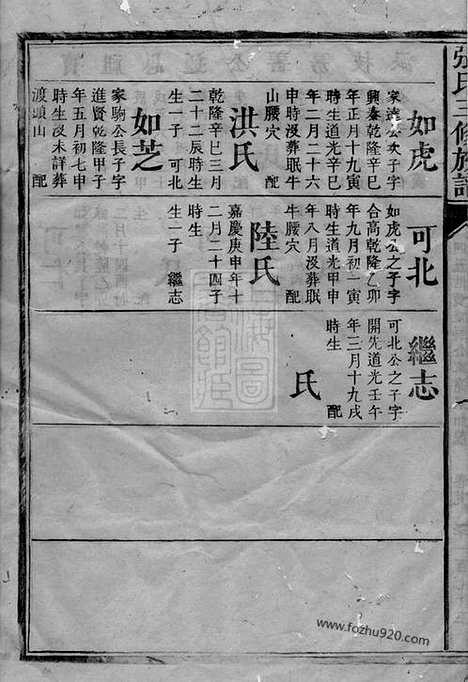 張氏三修族譜
如虎
家達公次子字
興秦乾隆辛巳
年正月十九寅
時生道光辛巳
年二月二十六
申時沒葬眠牛
山腰穴 配
洪氏
乾隆辛巳三月
二十二辰時生
生一子 可北
如芝
家駒公長子字
進賢乾隆甲子
年五月初七申
時生沒未詳葬
渡頭山 配
可北
如虎公之子字
合高乾隆乙卯
年九月初一寅
時生道光甲申
年八月沒葬眠
牛腰穴 配
陸氏
嘉慶庚申年十
二月二十四子
時生
生一子 繼志
繼志
可北公之子字
開先道光壬午
年三月十九戌
時生 配
氏
www.fozhu920.com